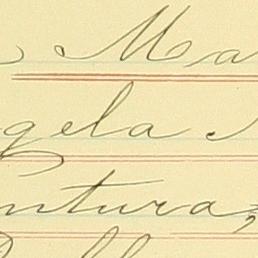 Ma
gela
ntura,